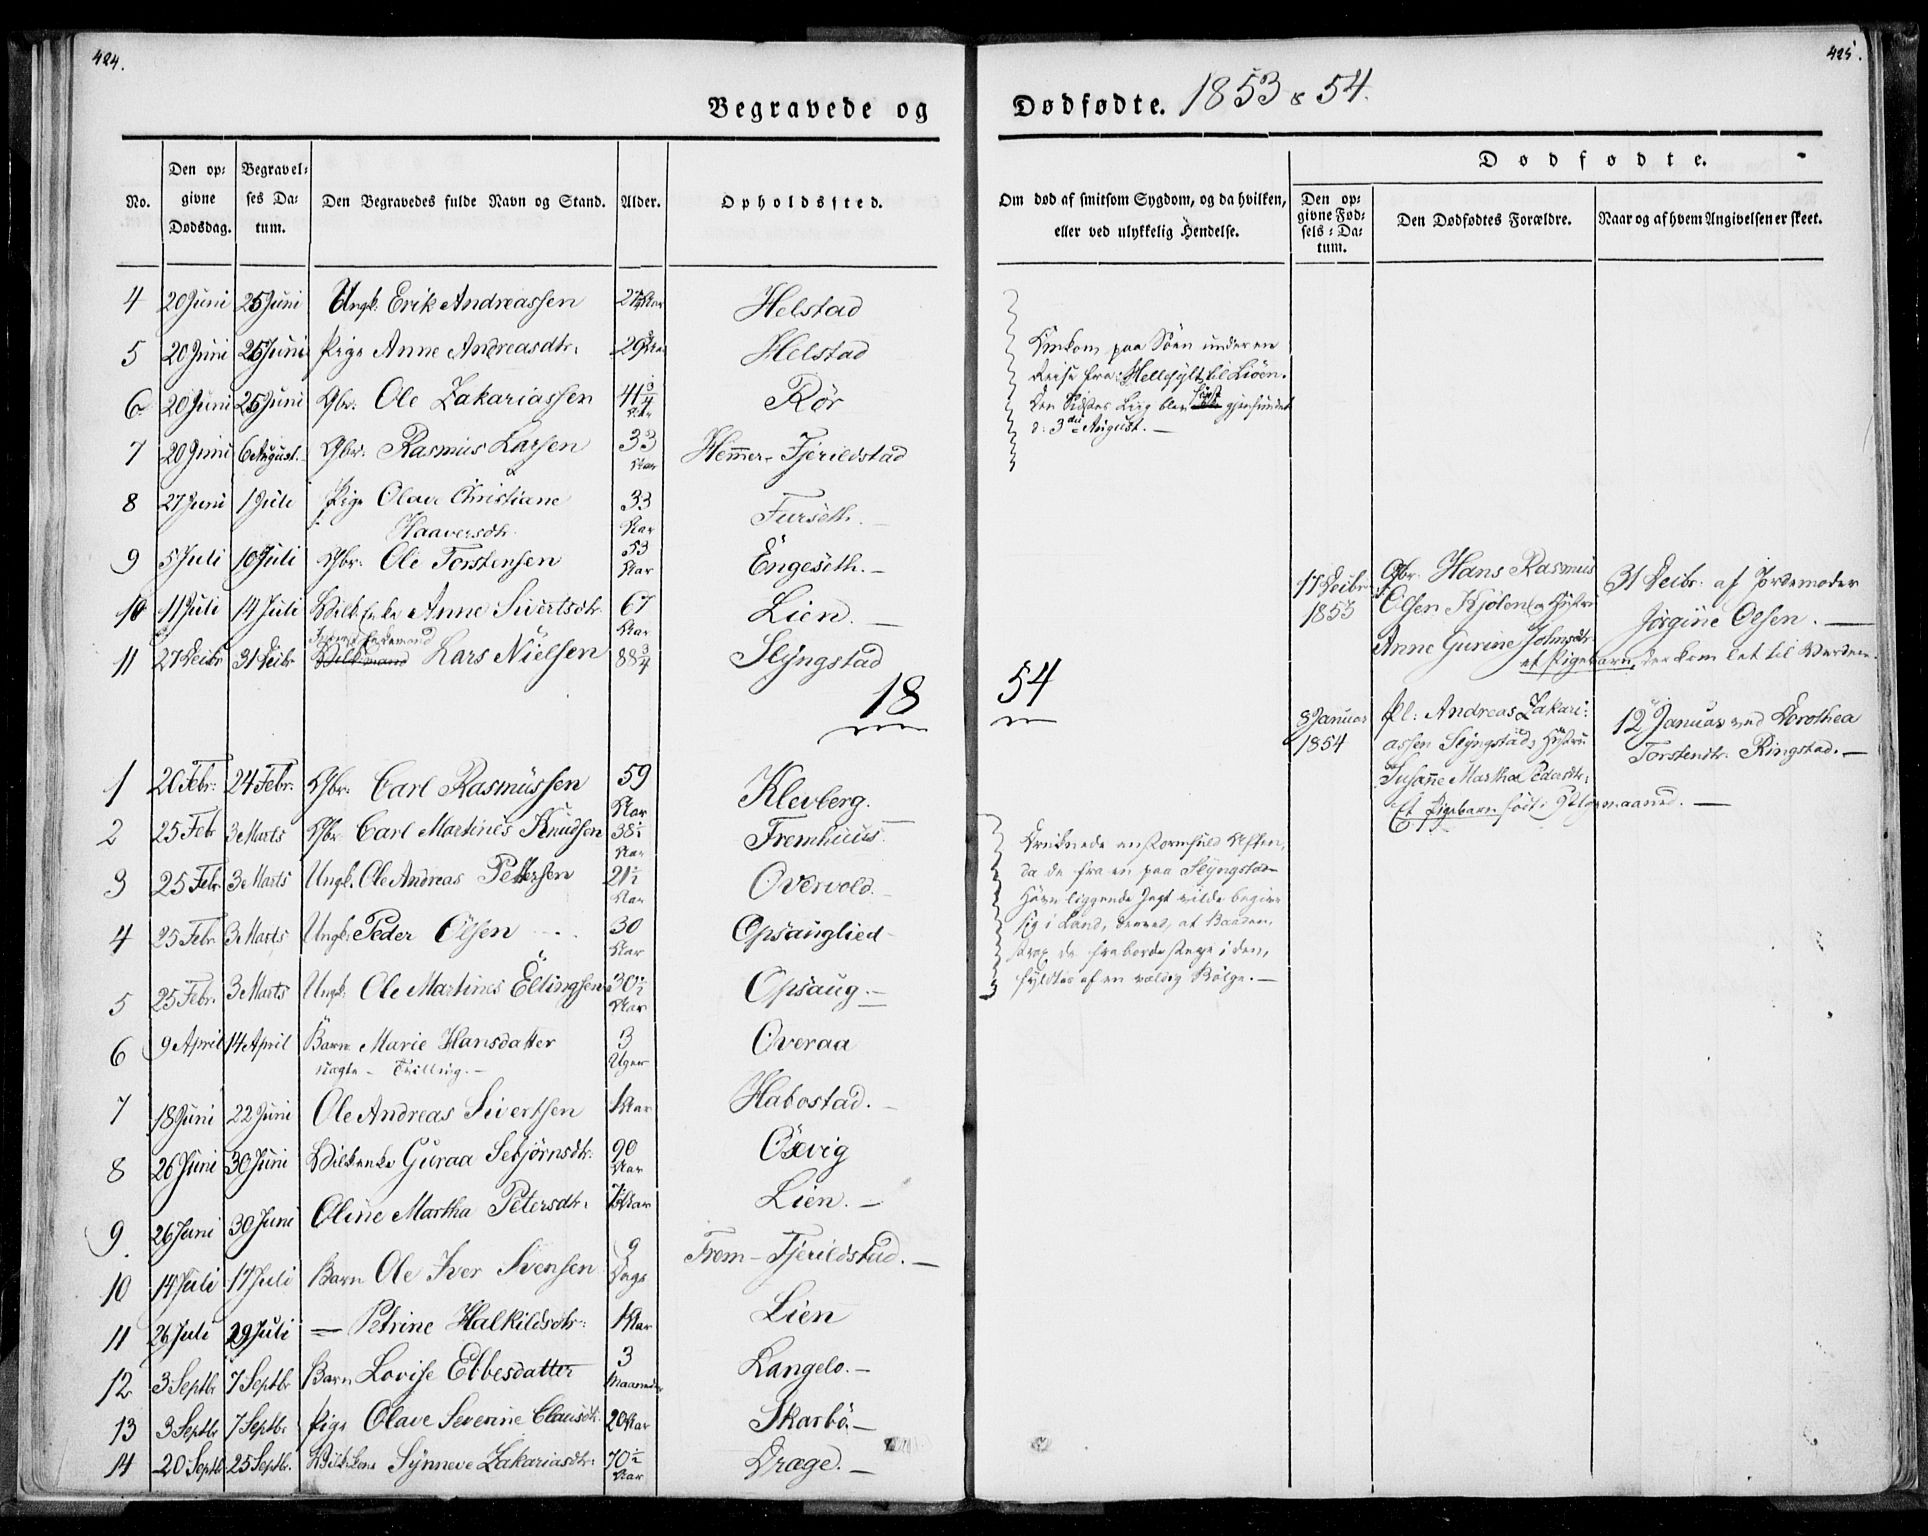 424.
Begravede og
No.
Den opgivne Dødsdag.
Begravelses Datum.
Den Begravedes fulde Navn og Stand.
Alder.
Opholdssted.
4 20 Juni 25 Juni Ungk: Erik Andreassen Aar Helstad
5 20 Juni 25 Juni Pige Anne Andreasdtr: 29 Helstad
6 20 Juni 25 Juni Gbr: Ole Zakariassen 41 3/4 Aar Rör
7 20 Juni 6 August. Gbr: Rasmus Larsen 33 Aar Hemmer-Fjerildstad
8 27 Juni 1 Juli Pige Olave Christiane 33
Haaversdtr. Aar Furseth.
9 5 Juli 10 Juli Gbr: Ole Torstensen 53 Aar Engeseth.
10 11 Juli 14 Juli Anne Sivertsdtr 67 Aar Lien.
11 27 Decbr 31 Decbr Lars Nielsen 88 3/4 Slyngstad
18
1 20 Febr: 24 Febr: Gbr: Carl Rasmussen 59 Aar Klevberg.
2 25 Febr 3 Marts Gbr Carl Martines Knudsen 38 1/2 Aar Fremhuus
3 25 Febr 3 Marts Ungk. Ole Andreas Pettersen 21 1/2 Aar Overvold.
4 25 Febr 3 Marts Ungk: Peder Olsen 30 Aar Opsauglied
5 25 Febr. 3 Marts Ungk: Ole Martines Ellingsen 30 1/2 Aar Opsaug.
6 9 April 14 April Barn Marie Hansdatter 3 Uger Overaa
ægte - Tvilling.
7 18 Juni 22 Juni Ole Andreas Sivertsen 1 Aar Habostad.
8 26 Juni 30 Juni Guraa Sebjørnsdtr: 90 Aar Öxvig
9 26 Juni 30 Juni Oline Martha Petersdtr. Aar Lien.
10 14 Juli 17 Juli Barn Ole Iver Svensen 9 Dage Frem-Fjerildstad.
11 26 Juli 29 Juli — Petrine Halkildsdtr: 1 Aar Lien
12 3 Septbr 7 Septbr Barn Lovise Ebbesdatter 3 Maaneder Langelo.
13 3 Septbr 7 Septbr. Pige Olave Severine Clausdtr. 20 Aar Skarbö.
14 20 Septbr 25 Septbr. Synneve Zakariasdtr: 70 1/2 Aar Drage.
425.
Dødfødte. 1853 & 54.
Om død af smitsom Sygdom, og da hvilken,
eller ved ulykkelig Hendelse.
Dødfødte.
Den opgivne Fødsels-Datum.
Den Dødfødtes Forældre.
Naar og af hvem Angivelsen er skeet.
Omkom paa Söen under en
Reise fra Hellesylt til Liöen.
Den Sidstes Liig blev först gjenfundet
d: 3die August.
17 Decbr 1853
Gbr. Hans Rasmus
Olsen Kjölens Hustru
Anne Gurine Johnsdtr:
et Pigebarn, der kom løt til Verden.
31 Decbr. af Jordemoder
Jörgine Olsen.
54
8 Januar 1854
Pl: Andreas Zakari-
assen Slyngstads Hustru
Susanne Martha Pedersdtr:
Et Pigebarn født i 9de Maaned.
12 Januar ved Dorothea
Torstendtr. Ringstad.
Druknede en stormfuld Aften,
da de fra en paa Slyngstad
Havn liggende Jagt vilde begive
sig i Land, derved, at Baaden,
strax de fraborde stege i den,
fyldtes af en vældig Bölge.